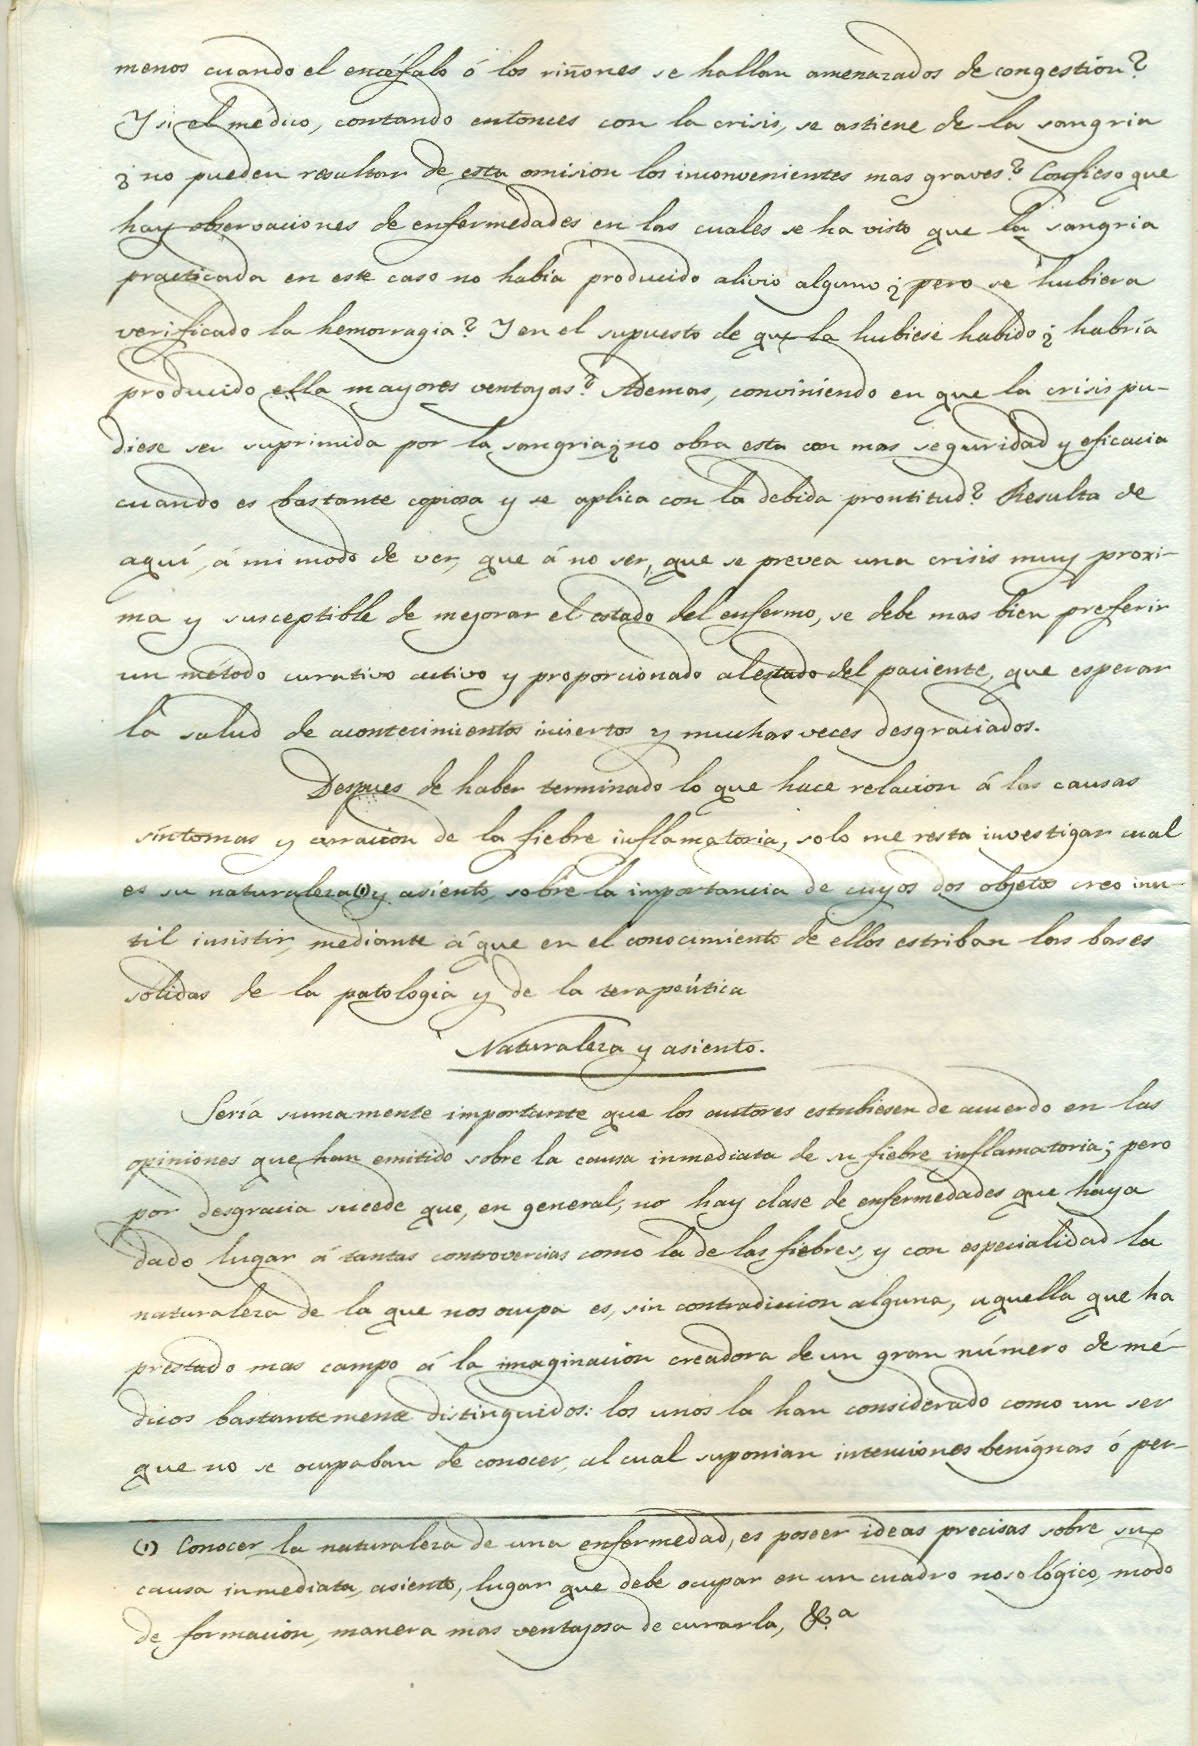 menos cuando el encéfalo ó los riñones se hallan amenazados de congestion?
Y si el medico, contando entonces con la crisis, se astiene de la sangria
¿no pueden resultar de esta omision los inconvenientes mas graves? Confieso que
hay observaciones de enfermedades en las cuales se ha visto que la sangria
practicada en este caso no habia producido alivio alguno ¿pero se hubiera
verificado la hemorragia? Y en el supuesto de que la hubiese habido ¿habría
producido ella mayores ventajas? Ademas, conviniendo en que la crisis pu-
diese ser suprimida por la sangria ¿no obra esta con mas seguridad y eficacia
cuando es bastante copiosa y se aplica con la debida prontitud? Resulta de
aquí, á mi modo de ver, que á no ser, que se prevea una crisis muy proxi-
ma y susceptible de mejorar el estado del enfermo, se debe mas bien preferir
un método curativo activo y proporcionado al estado del paciente, que esperar
la salud de acontecimientos inciertos y muchas veces desgraciados.
Despues de haber terminado lo que hace relacion á las causas
síntomas y curacion de la fiebre inflamatoria, solo me resta investigar cual
es su naturaleza (1) y asiento, sobre la importancia de cuyos dos objetos creo inu-
til insistir, mediante á que en el conocimiento de ellos estriban las bases
sólidas de la patologia y de la terapeútica
Naturaleza y asiento.
Sería sumamente importante que los autores estubiesen de acuerdo en las
opiniones que han emitido sobre la causa inmediata de su fiebre inflamatoria; pero
por desgracia sucede que, en general, no hay clase de enfermedades que haya
dado lugar á tantas controvercias como la de las fiebres, y con especialidad la
naturaleza de la que nos ocupa es, sin contradiccion alguna, aquella que ha
prestado mas campo á la imaginacion creadora de un gran número de mé-
dicos bastantemente distinguidos: los unos la han considerado como un ser
que no se ocupaban de conocer, al cual suponian intenciones benignas ó per-
(1) Conocer la naturaleza de una enfermedad, es poseer ideas precisas sobre su
causa inmediata, asiento, lugar que debe ocupar en un cuadro nosológico, modo
de formacion, manera mas ventajosa de curarla, &.ª